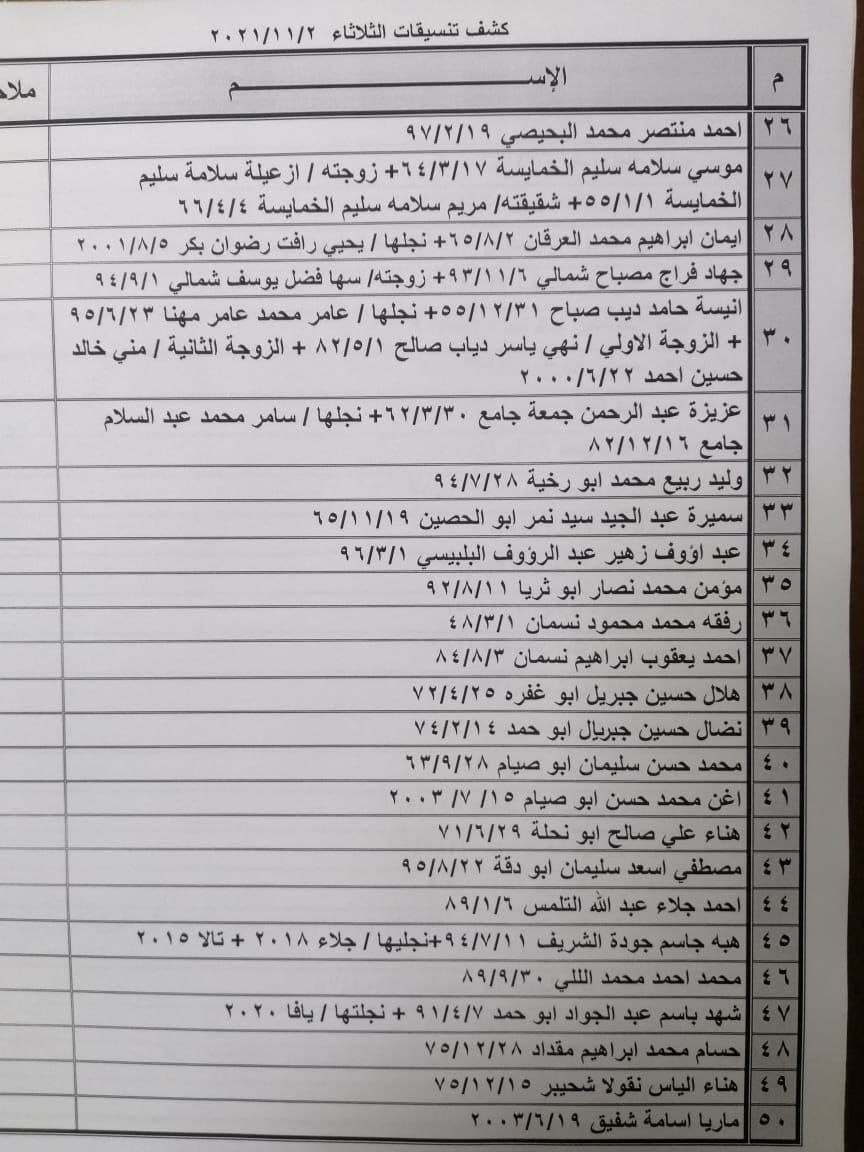 كشف تنسيقات الثلاثاء ٢٠٢١/١١/٢
م الإســـــــــم
٢٦ احمد منتصر محمد البحيصي ٩٧/٢/١٩
٢٧ موسي سلامه سليم الخمايسة ٦٤/٣/١٧+ زوجته / ازعيلة سلامة سليم
الخمايسة ٥٥/١/١+ شقيقته/ مريم سلامه سليم الخمايسة ٦٦/٤/٤
٢٨ ايمان ابراهيم محمد العرقان ٦٥/٨/٢+ نجلها / يحيي رافت رضوان بكر ٢٠٠١/٨/٥
٢٩ جهاد فراج مصباح شمالي ٩٣/١١/٦+ زوجته/ سها فضل يوسف شمالي ٩٤/٩/١
٣٠ انيسة حامد ديب صباح ٥٥/١٢/٣١+ نجلها / عامر محمد عامر مهنا ٩٥/٦/٢٣
+ الزوجة الاولي / نهي ياسر دياب صالح ٨٢/٥/١ + الزوجة الثانية / مني خالد
حسين احمد ٢٠٠٠/٦/٢٢
٣١ عزيزة عبد الرحمن جمعة جامع ٦٢/٣/٣٠+ نجلها / سامر محمد عبد السلام
جامع ٨٢/١٢/١٦
٣٢ وليد ربيع محمد ابو رخية ٩٤/٧/٢٨
٣٣ سميرة عبد الجيد سيد نمر ابو الحصين ٦٥/١١/١٩
٣٤ عبد اؤوف زهير عبد الرؤوف البلبيسي ٩٦/٣/١
٣٥ مؤمن محمد نصار ابو ثريا ٩٢/٨/١١
٣٦ رفقه محمد محمود نسمان ٤٨/٣/١
٣٧ احمد يعقوب ابراهيم نسمان ٨٤/٨/٣
٣٨ هلال حسين جبريل ابو غفره ٧٢/٤/٢٥
٣٩ نضال حسين جبريال ابو حمد ٧٤/٢/١٤
٤٠ محمد حسن سليمان ابو صيام ٦٣/٩/٢٨
٤١ اغن محمد حسن ابو صيام ١٥/ ٧/ ٢٠٠٣
٤٢ هناء علي صالح ابو نحلة ٧١/٦/٢٩
٤٣ مصطفي اسعد سليمان ابو دقة ٩٥/٨/٢٢
٤٤ احمد جلاء عبد الله التلمس ٨٩/١/٦
٤٥ هبه جاسم جودة الشريف ٩٤/٧/١١+نجليها / جلاء ٢٠١٨ + تالا ٢٠١٥
٤٦ محمد احمد محمد اللي ٨٩/٩/٣٠
٤٧ شهد باسم عبد الجواد ابو حمد ٩١/٤/٧ + نجلتها / يافا ٢٠٢٠
٤٨ حسام محمد ابراهيم مقداد ٧٥/١٢/٢٨
٤٩ هناء الياس نقولا شحيبر ٧٥/١٢/١٥
٥٠ ماريا اسامة شفيق ٢٠٠٣/٦/١٩